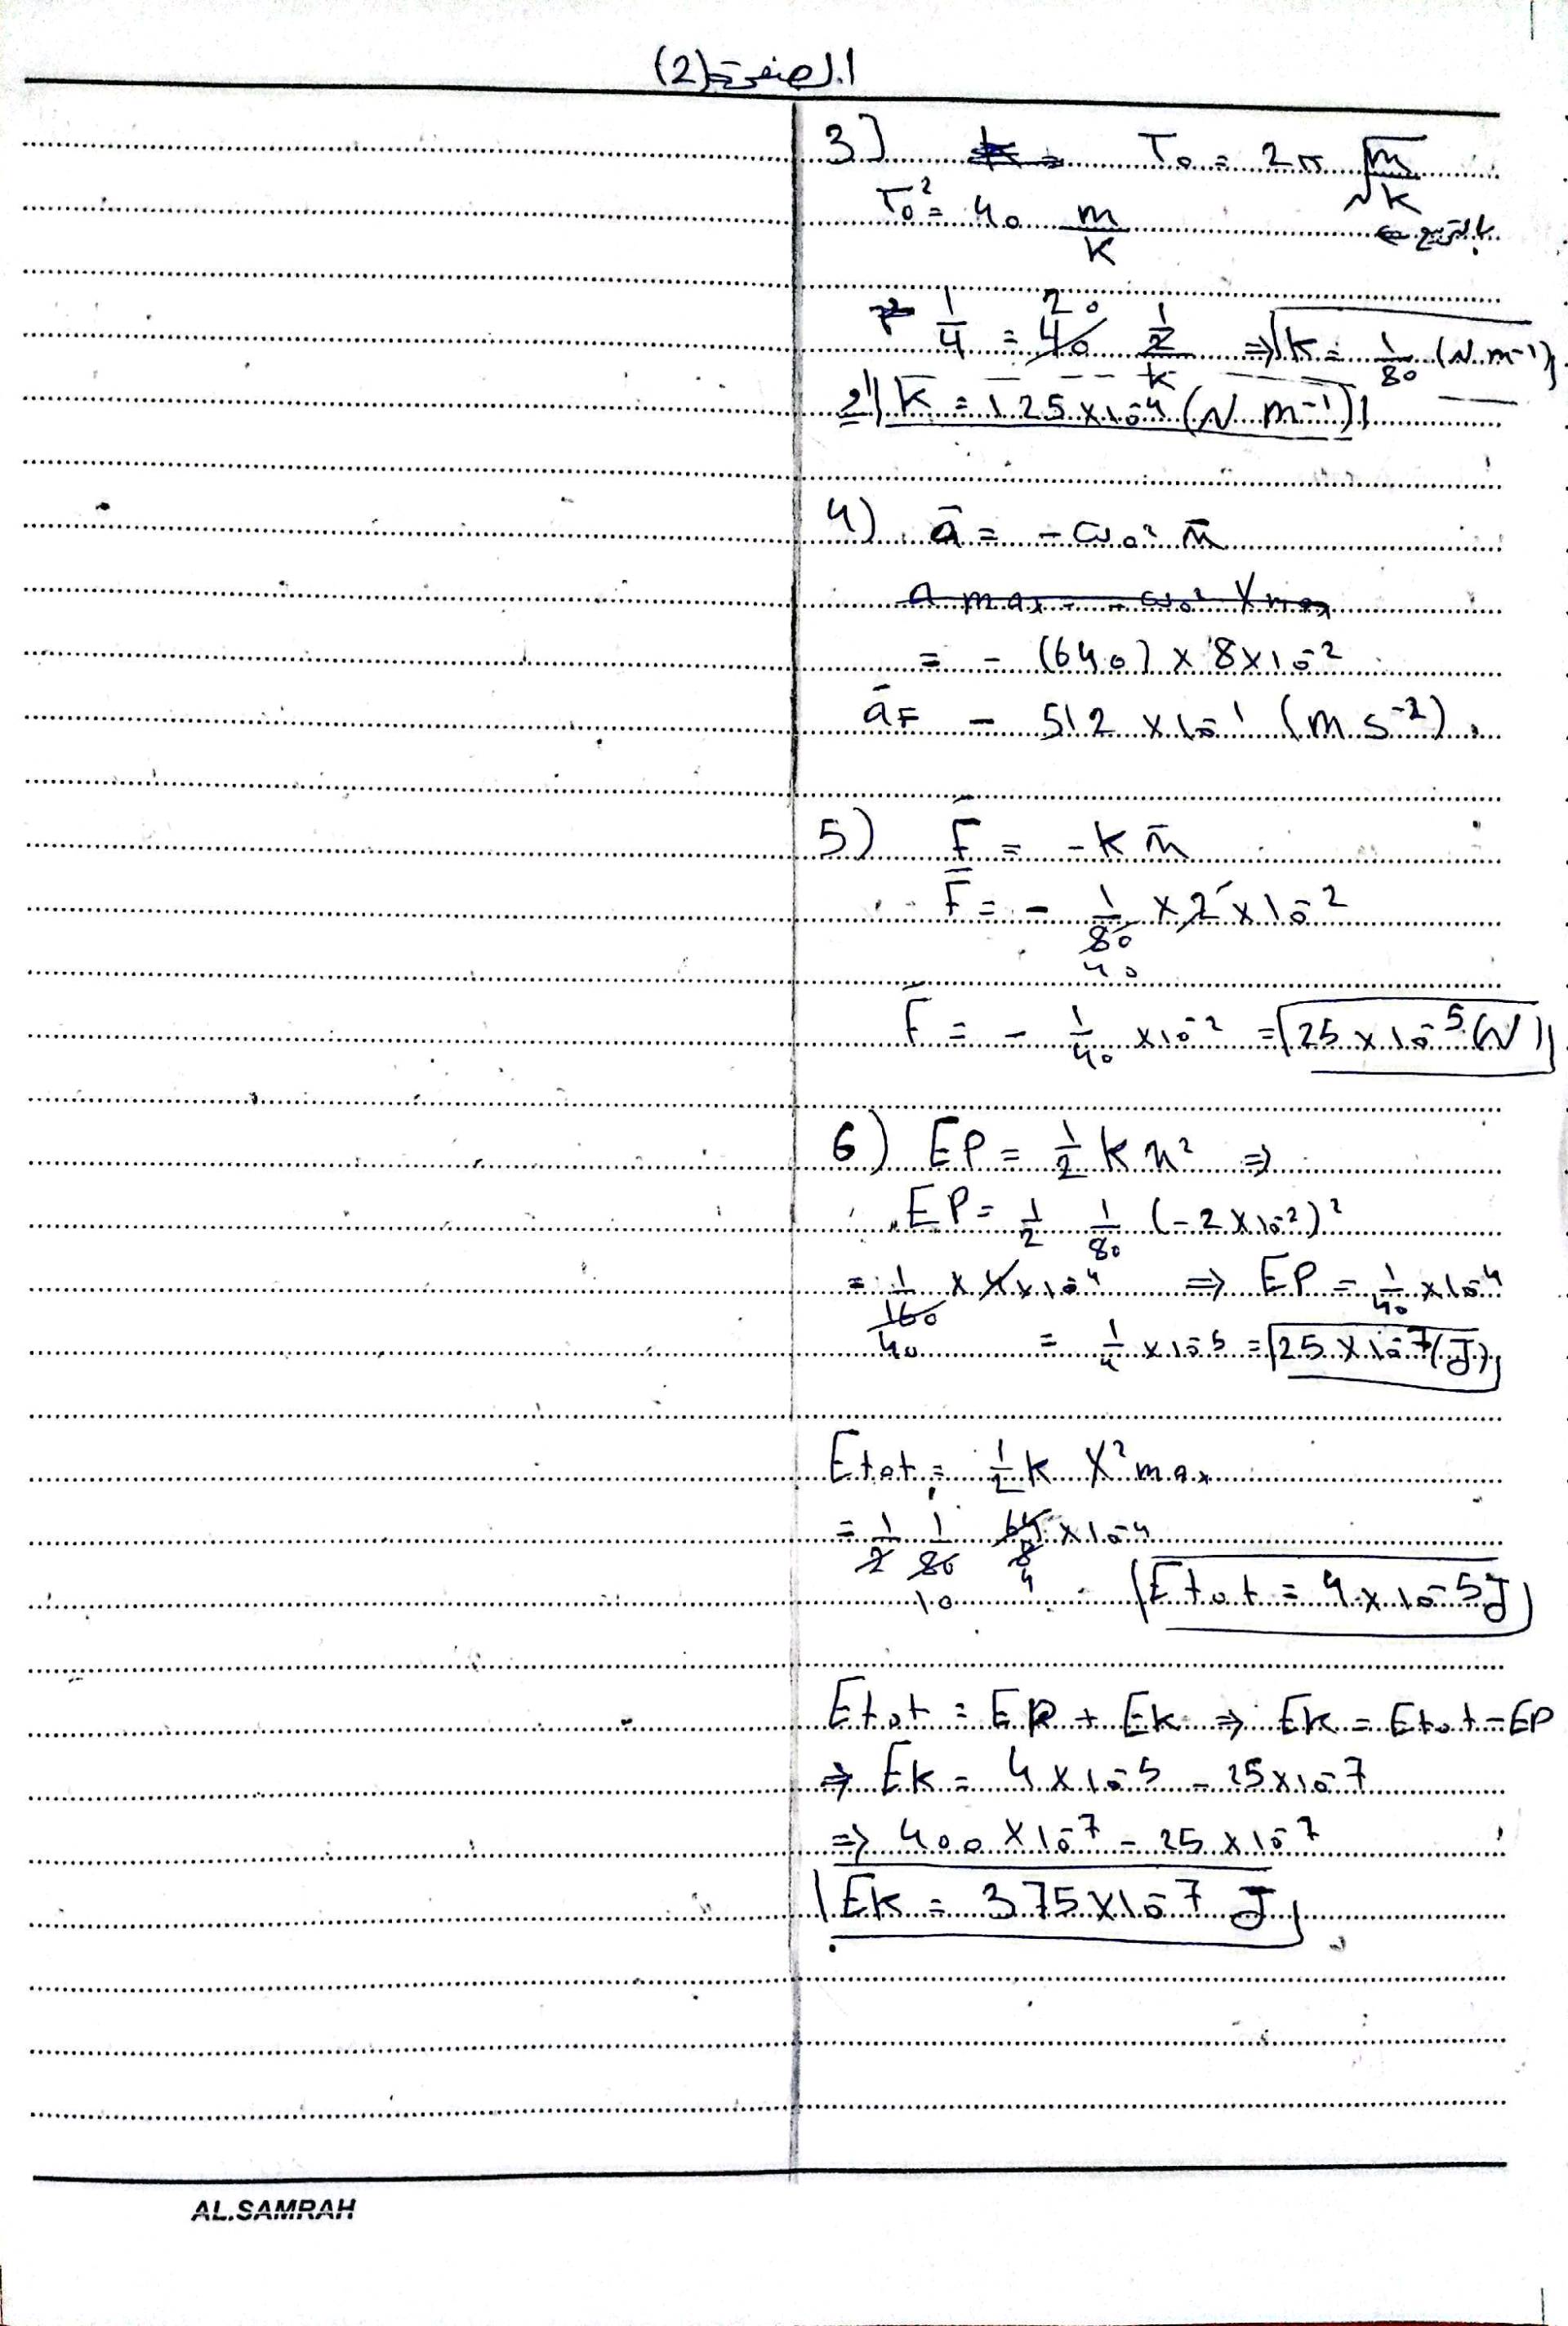 الصفحة (2)
3) T₀ = 2π √(m/k)
T₀² = 40 m/k بالتربيع ⇐
1/4 = 40 20 (1/2)/k ⇒ k = 1/80 (N.m⁻¹)
k = 125 × 10⁻⁴ (N.m⁻¹)
4) ā = - ω₀² x̄
a max = - ω₀² Xmax
= - (640) × 8 × 10⁻²
ā = - 512 × 10⁻¹ (m.s⁻²)
5) F̄ = - k x̄
F̄ = - 1/80 × 2 × 10⁻²
40
F̄ = - 1/40 × 10⁻² = 25 × 10⁻⁵ (N)
6) EP = 1/2 k x² ⇒
EP = 1/2 1/80 (-2 × 10⁻²)²
= 1/160 × 4 × 10⁻⁴ ⇒ EP = 1/40 × 10⁻⁴
40 = 1/4 × 10⁻⁵ = 25 × 10⁻⁷ (J)
Etot = 1/2 k X² max
= 1/2 1/80 64 × 10⁻⁴
10 8 4 Etot = 4 × 10⁻⁵ J
Etot = EP + Ek ⇒ Ek = Etot - EP
⇒ Ek = 4 × 10⁻⁵ - 25 × 10⁻⁷
⇒ 400 × 10⁻⁷ - 25 × 10⁻⁷
Ek = 375 × 10⁻⁷ J
AL.SAMRAH